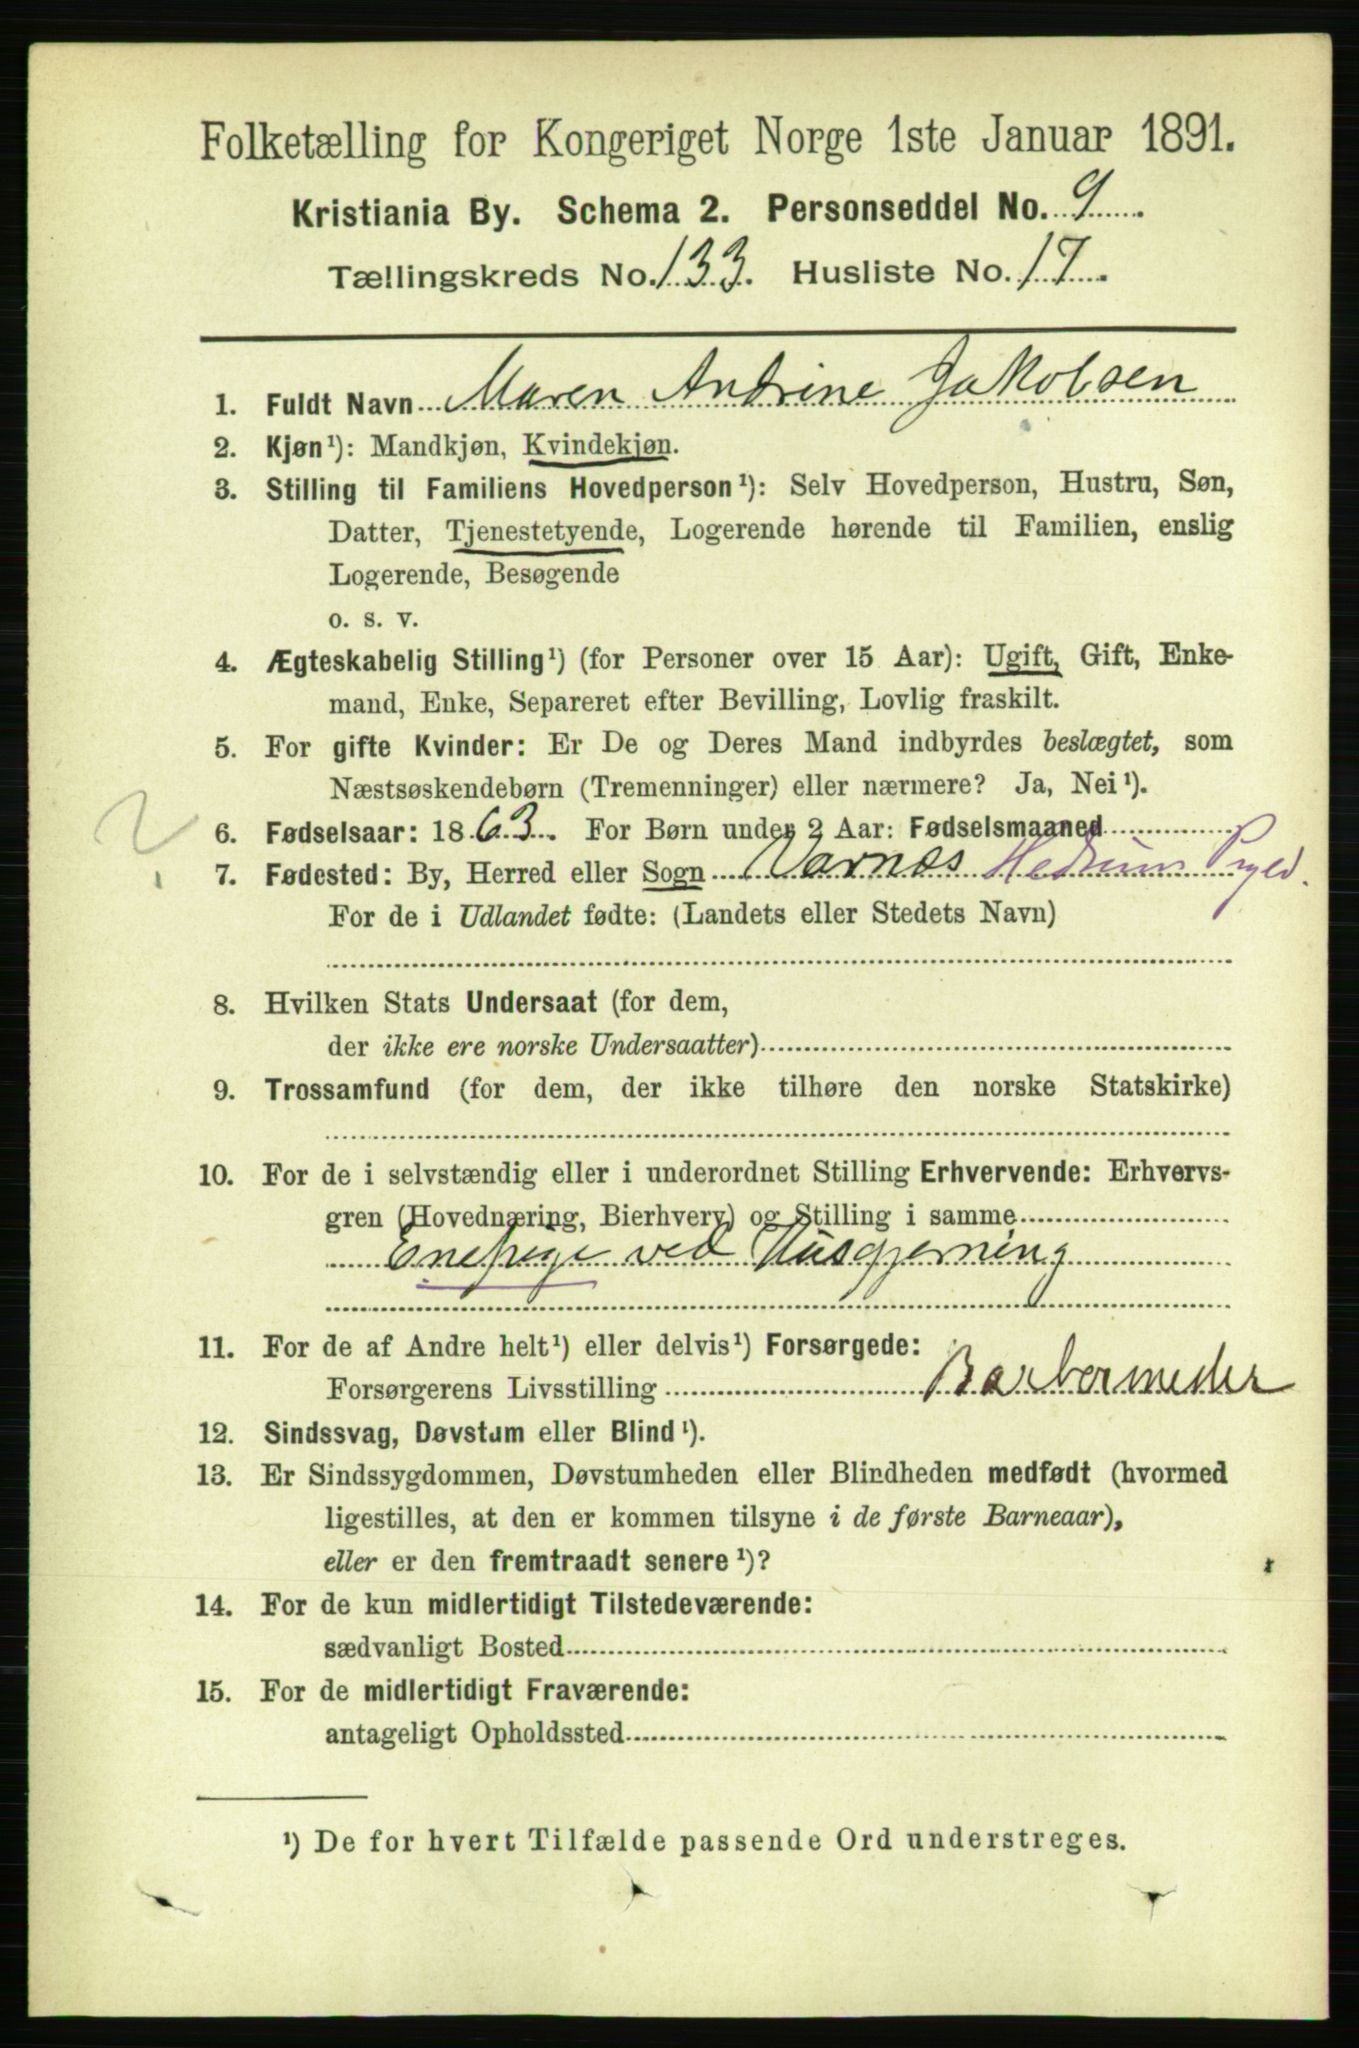 Folketælling for Kongeriget Norge 1ste Januar 1891.
Kristiania By. Schema 2. Personseddel No. 9
Tællingskreds No. 133. Husliste No. 17.
1. Fuldt Navn Maren Andrine Jakobsen
2. Kjøn¹): Mandkjøn, Kvindekjøn.
3. Stilling til Familiens Hovedperson¹): Selv Hovedperson, Hustru, Søn,
Datter, Tjenestetyende, Logerende hørende til Familien, enslig
Logerende, Besøgende
o. s. v.
4. Ægteskabelig Stilling¹) (for Personer over 15 Aar): Ugift, Gift, Enke-
mand, Enke, Separeret efter Bevilling, Lovlig fraskilt.
5. For gifte Kvinder: Er De og Deres Mand indbyrdes beslægtet, som
Næstsøskendebørn (Tremenninger) eller nærmere? Ja, Nei¹).
6. Fødselsaar: 1863. For Børn under 2 Aar: Fødselsmaaned
7. Fødested: By, Herred eller Sogn Varnæs Hedrum Prgld.
For de i Udlandet fødte: (Landets eller Stedets Navn)
8. Hvilken Stats Undersaat (for dem,
der ikke ere norske Undersaatter)
9. Trossamfund (for dem, der ikke tilhøre den norske Statskirke)
10. For de i selvstændig eller i underordnet Stilling Erhvervende: Erhvervs-
gren (Hovednæring, Bierhverv) og Stilling i samme
Enepige ved Husgjerning
11. For de af Andre helt¹) eller delvis¹) Forsørgede:
Forsørgerens Livsstilling Barbermester
12. Sindssvag, Døvstum eller Blind¹).
13. Er Sindssygdommen, Døvstumheden eller Blindheden medfødt (hvormed
ligestilles, at den er kommen tilsyne i de første Barneaar),
eller er den fremtraadt senere¹)?
14. For de kun midlertidigt Tilstedeværende:
sædvanligt Bosted
15. For de midlertidigt Fraværende:
antageligt Opholdssted
¹) De for hvert Tilfælde passende Ord understreges.